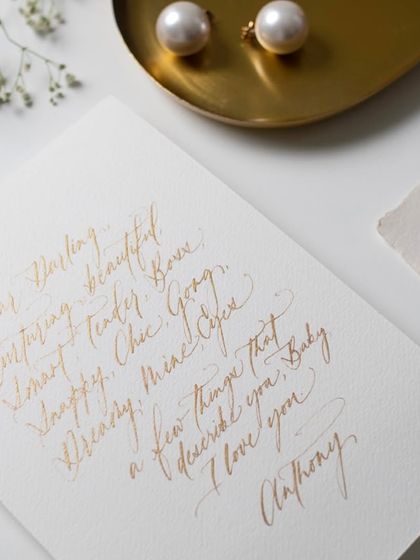 Darling,
nurturing, beautiful,
Smart, Tender, Boss,
Snappy, Chic, Gong,
Dreamy, Mine, Eyes
a few things that
describe you, Baby
I love you
Anthony